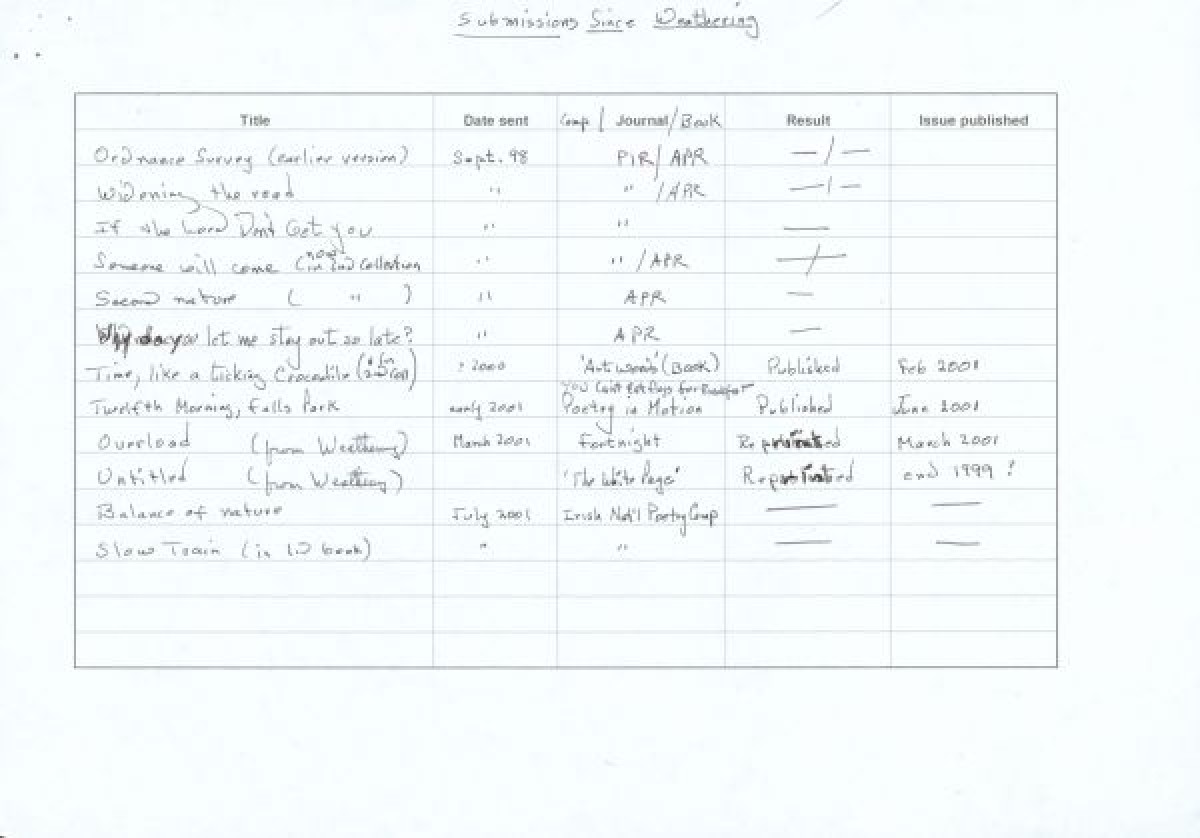 Submissions Since Weathering
Title Date sent Comp / Journal / Book Result Issue published
Ordnance Survey (earlier version) Sept. 98 PIR / APR — / —
Widening the road " " / APR — / —
If the Lord Don't Get you " " —
Someone will come (now in 2nd Collection " " / APR — / —
Second nature ( " ) " APR —
let me stay out so late? " APR —
Time, like a ticking Crocodile ( in 2nd Coll) ? 2000 (Book) Published Feb 2001
You Can't Eat Flags for Breakfast
Twelfth Morning, Falls Park early 2001 Poetry in Motion Published June 2001
Overload (from Weathering) March 2001 Fortnight Reprinted March 2001
Untitled (from Weathering) 'The White Page' Reprinted end 1999 ?
Balance of nature July 2001 Irish Nat'l Poetry Comp — —
Slow Train (in LD book) " " — —